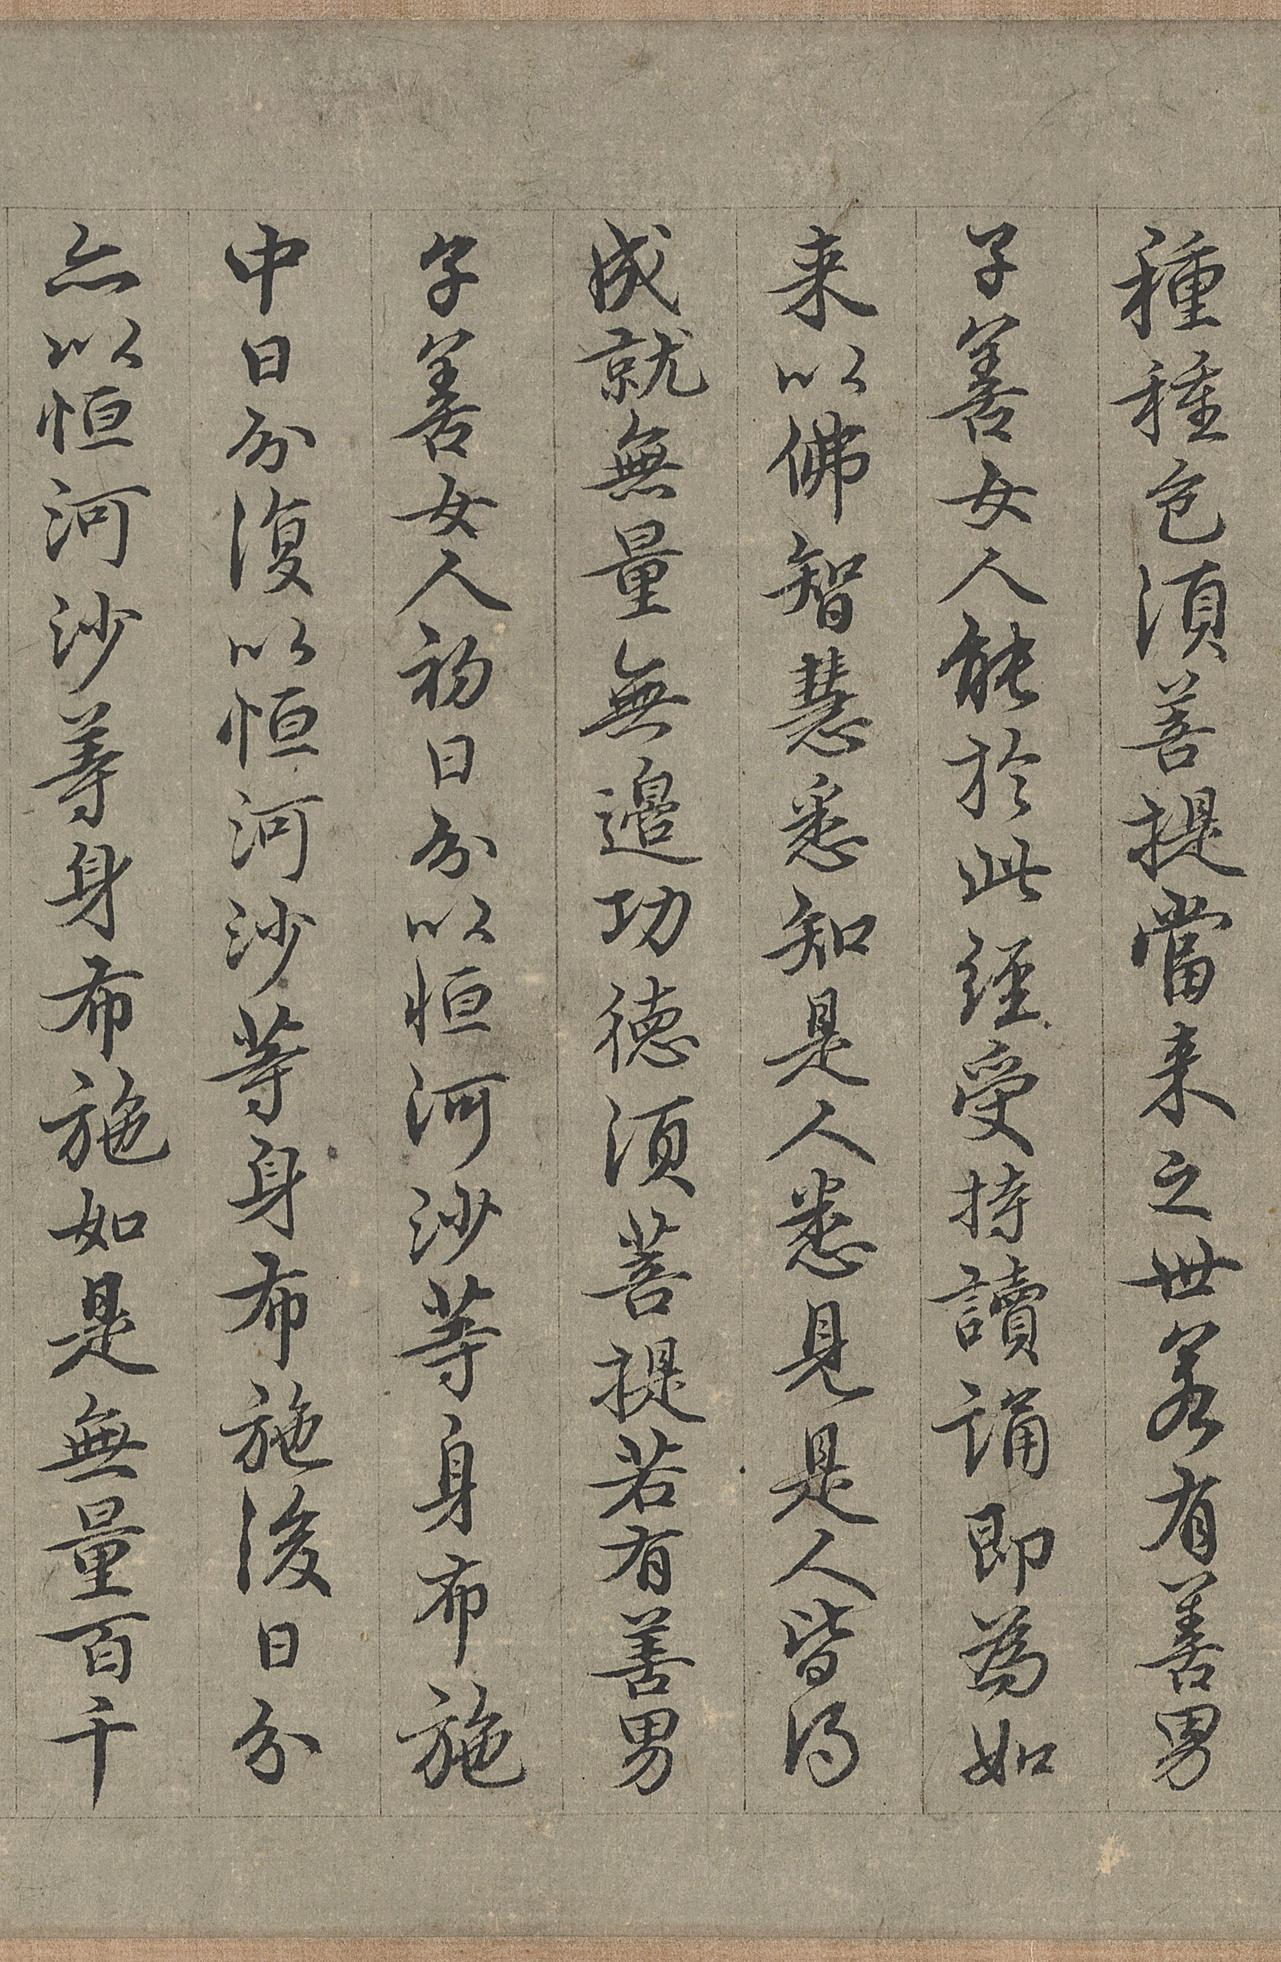 種種色須菩提當来之世若有善男
子善女人能於此經受持讀誦即為如
来以佛智慧悉知是人悉見是人皆得
成就無量無邊功德須菩提若有善男
子善女人初日分以恒河沙等身布施
中日分復以恒河沙等身布施後日分
亦以恒河沙等身布施如是無量百千